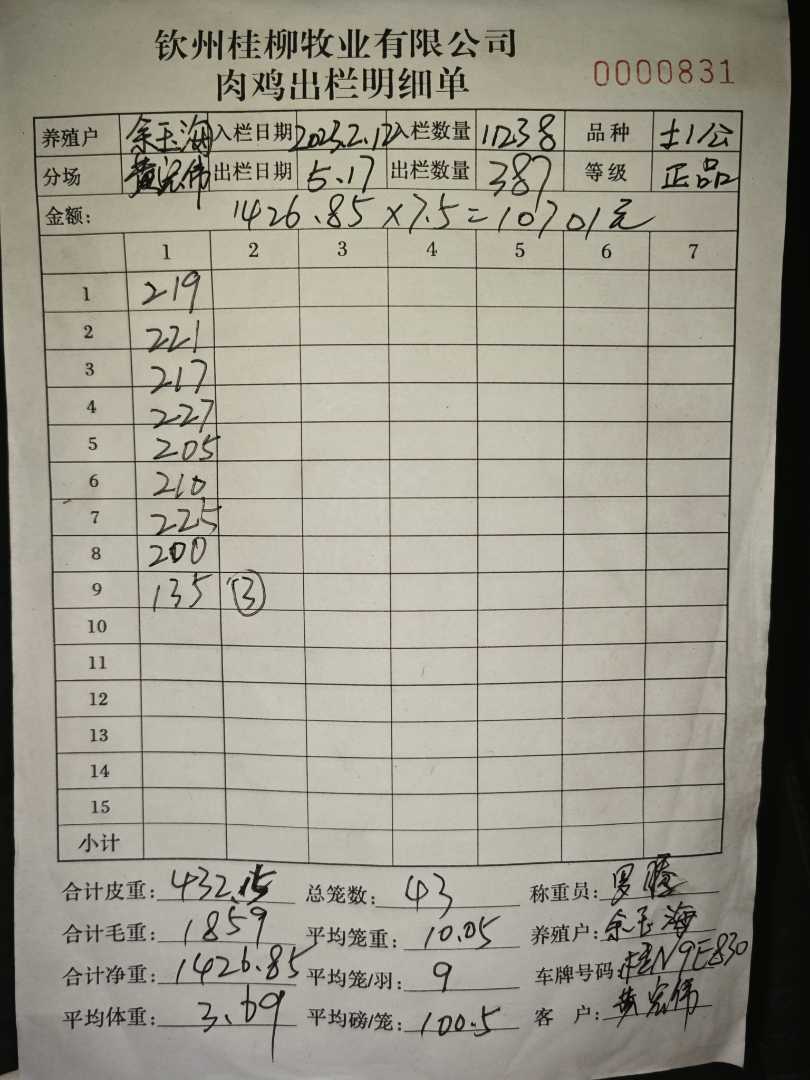 钦州桂柳牧业有限公司
肉鸡出栏明细单 0000831
养殖户 余玉海 入栏日期 2023.2.12 入栏数量 11238 品种 土1公
分场 黄宏伟 出栏日期 5.17 出栏数量 387 等级 正品
金额: 1426.85×7.5=10701元
1 2 3 4 5 6 7
1 219
2 221
3 217
4 227
5 205
6 210
7 225
8 200
9 135 ③
10
11
12
13
14
15
小计
合计皮重: 432.15 总笼数: 43 称重员: 罗
合计毛重: 1859 平均笼重: 10.05 养殖户: 余玉海
合计净重: 1426.85 平均笼/羽: 9 车牌号码: 桂N9E830
平均体重: 3.69 平均磅/笼: 100.5 客 户: 黄宏伟